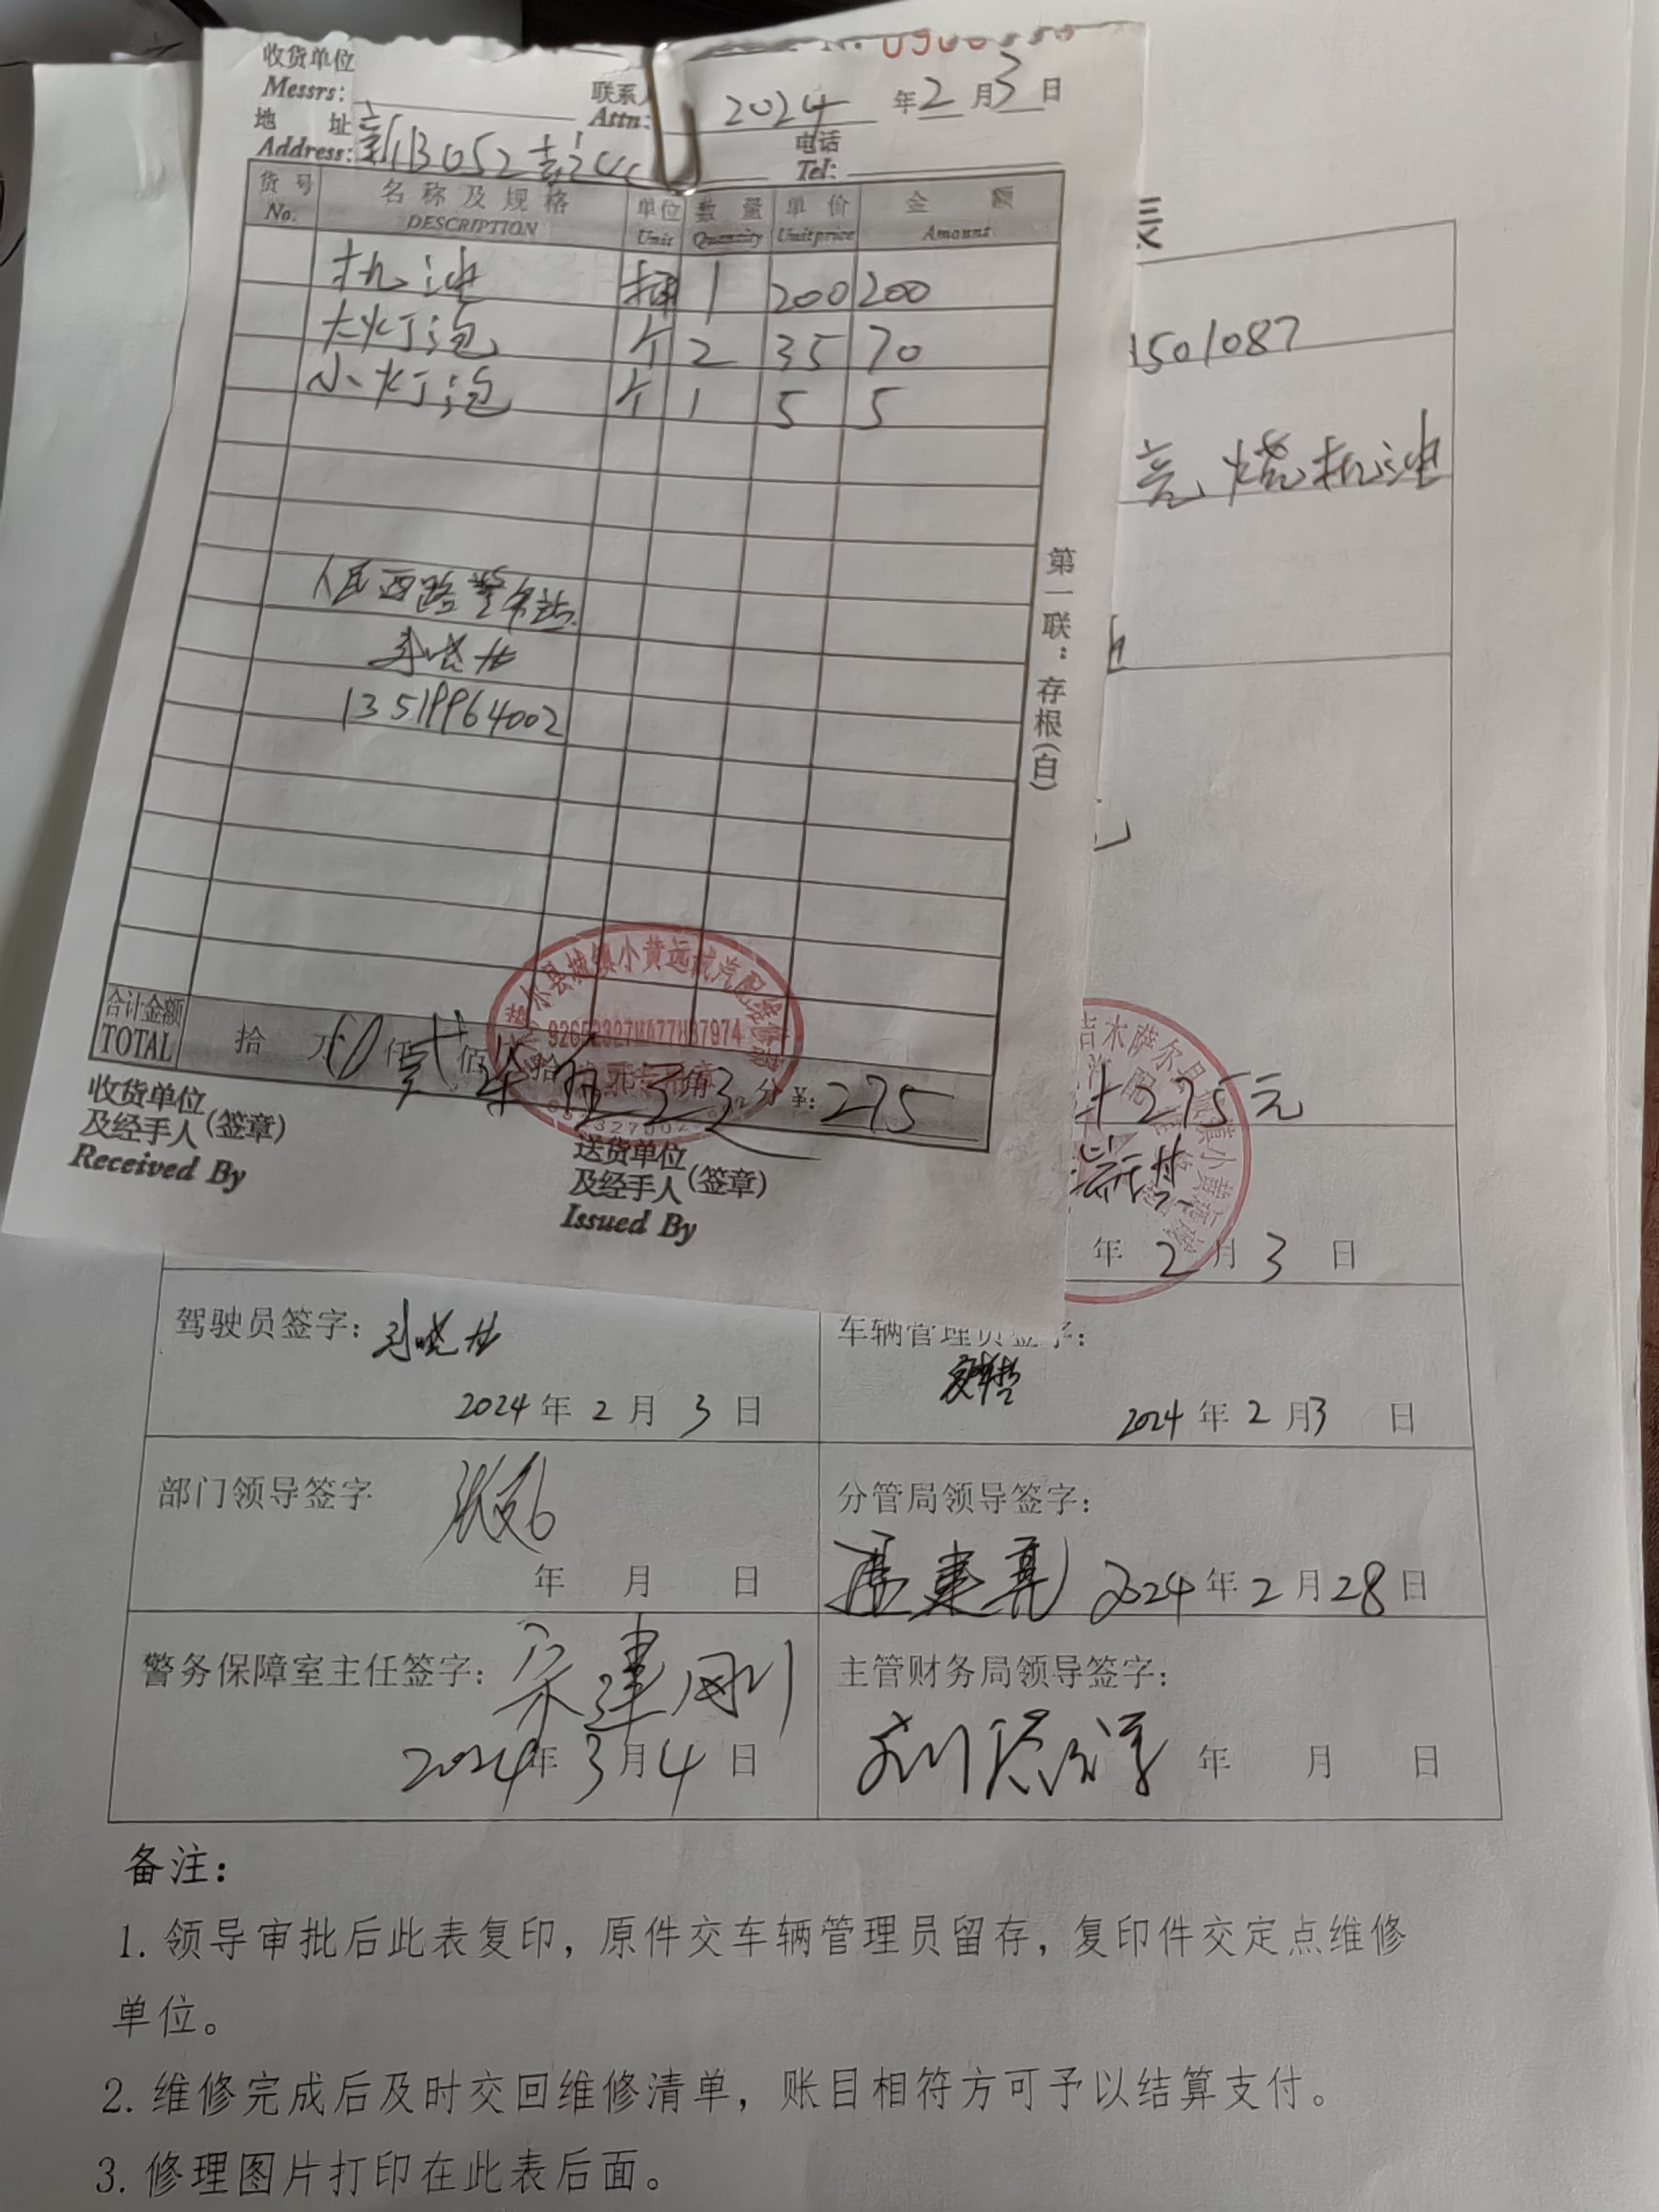 收货单位
Messrs:
联系人
Attn:
2024 年 2 月 3 日
地 址
Address: 新B052
电话
Tel:
货号 名称及规格 单位 数量 单价 金额
No. DESCRIPTION Unit Quantity Unitprice Amount
机油 桶 1 200 200
大灯泡 个 2 35 70
小灯泡 个 1 5 5
人民西路警务站
13519964002
第一联：存根(白)
合计金额
TOTAL
拾 万 仟 贰 佰 柒 拾 伍 元 角 分 ¥: 275
收货单位
及经手人(签章)
Received By
送货单位
及经手人(签章)
Issued By
表
501087
亮 烧机油
275元
年 2 月 3 日
驾驶员签字：
2024 年 2 月 3 日
车辆管理员签字：
2024 年 2 月 3 日
部门领导签字
年 月 日
分管局领导签字：
2024 年 2 月 28 日
警务保障室主任签字： 宋建刚
2024 年 3 月 4 日
主管财务局领导签字：
年 月 日
备注：
1. 领导审批后此表复印，原件交车辆管理员留存，复印件交定点维修
单位。
2. 维修完成后及时交回维修清单，账目相符方可予以结算支付。
3. 修理图片打印在此表后面。